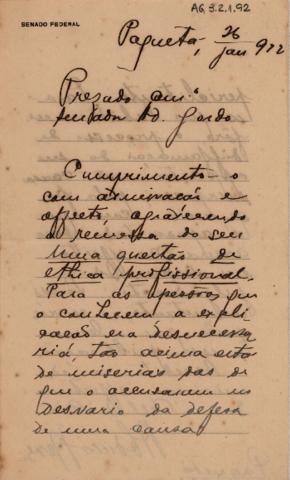 AG.3.2.1.92
SENADO FEDERAL
Paquetá, 26
jan 912
Prezado amº
Senador Ad. Gordo
Cumprimento-o
com admiração e
affecto, agradecendo
a remessa do seu
Uma questão de
ethica profissional.
Para as pessoas que
o conhecem a expli
cação era desnecessa
ria, tão acima está
de miserias das de
que o accusaram no
desvario da defesa
de uma causa